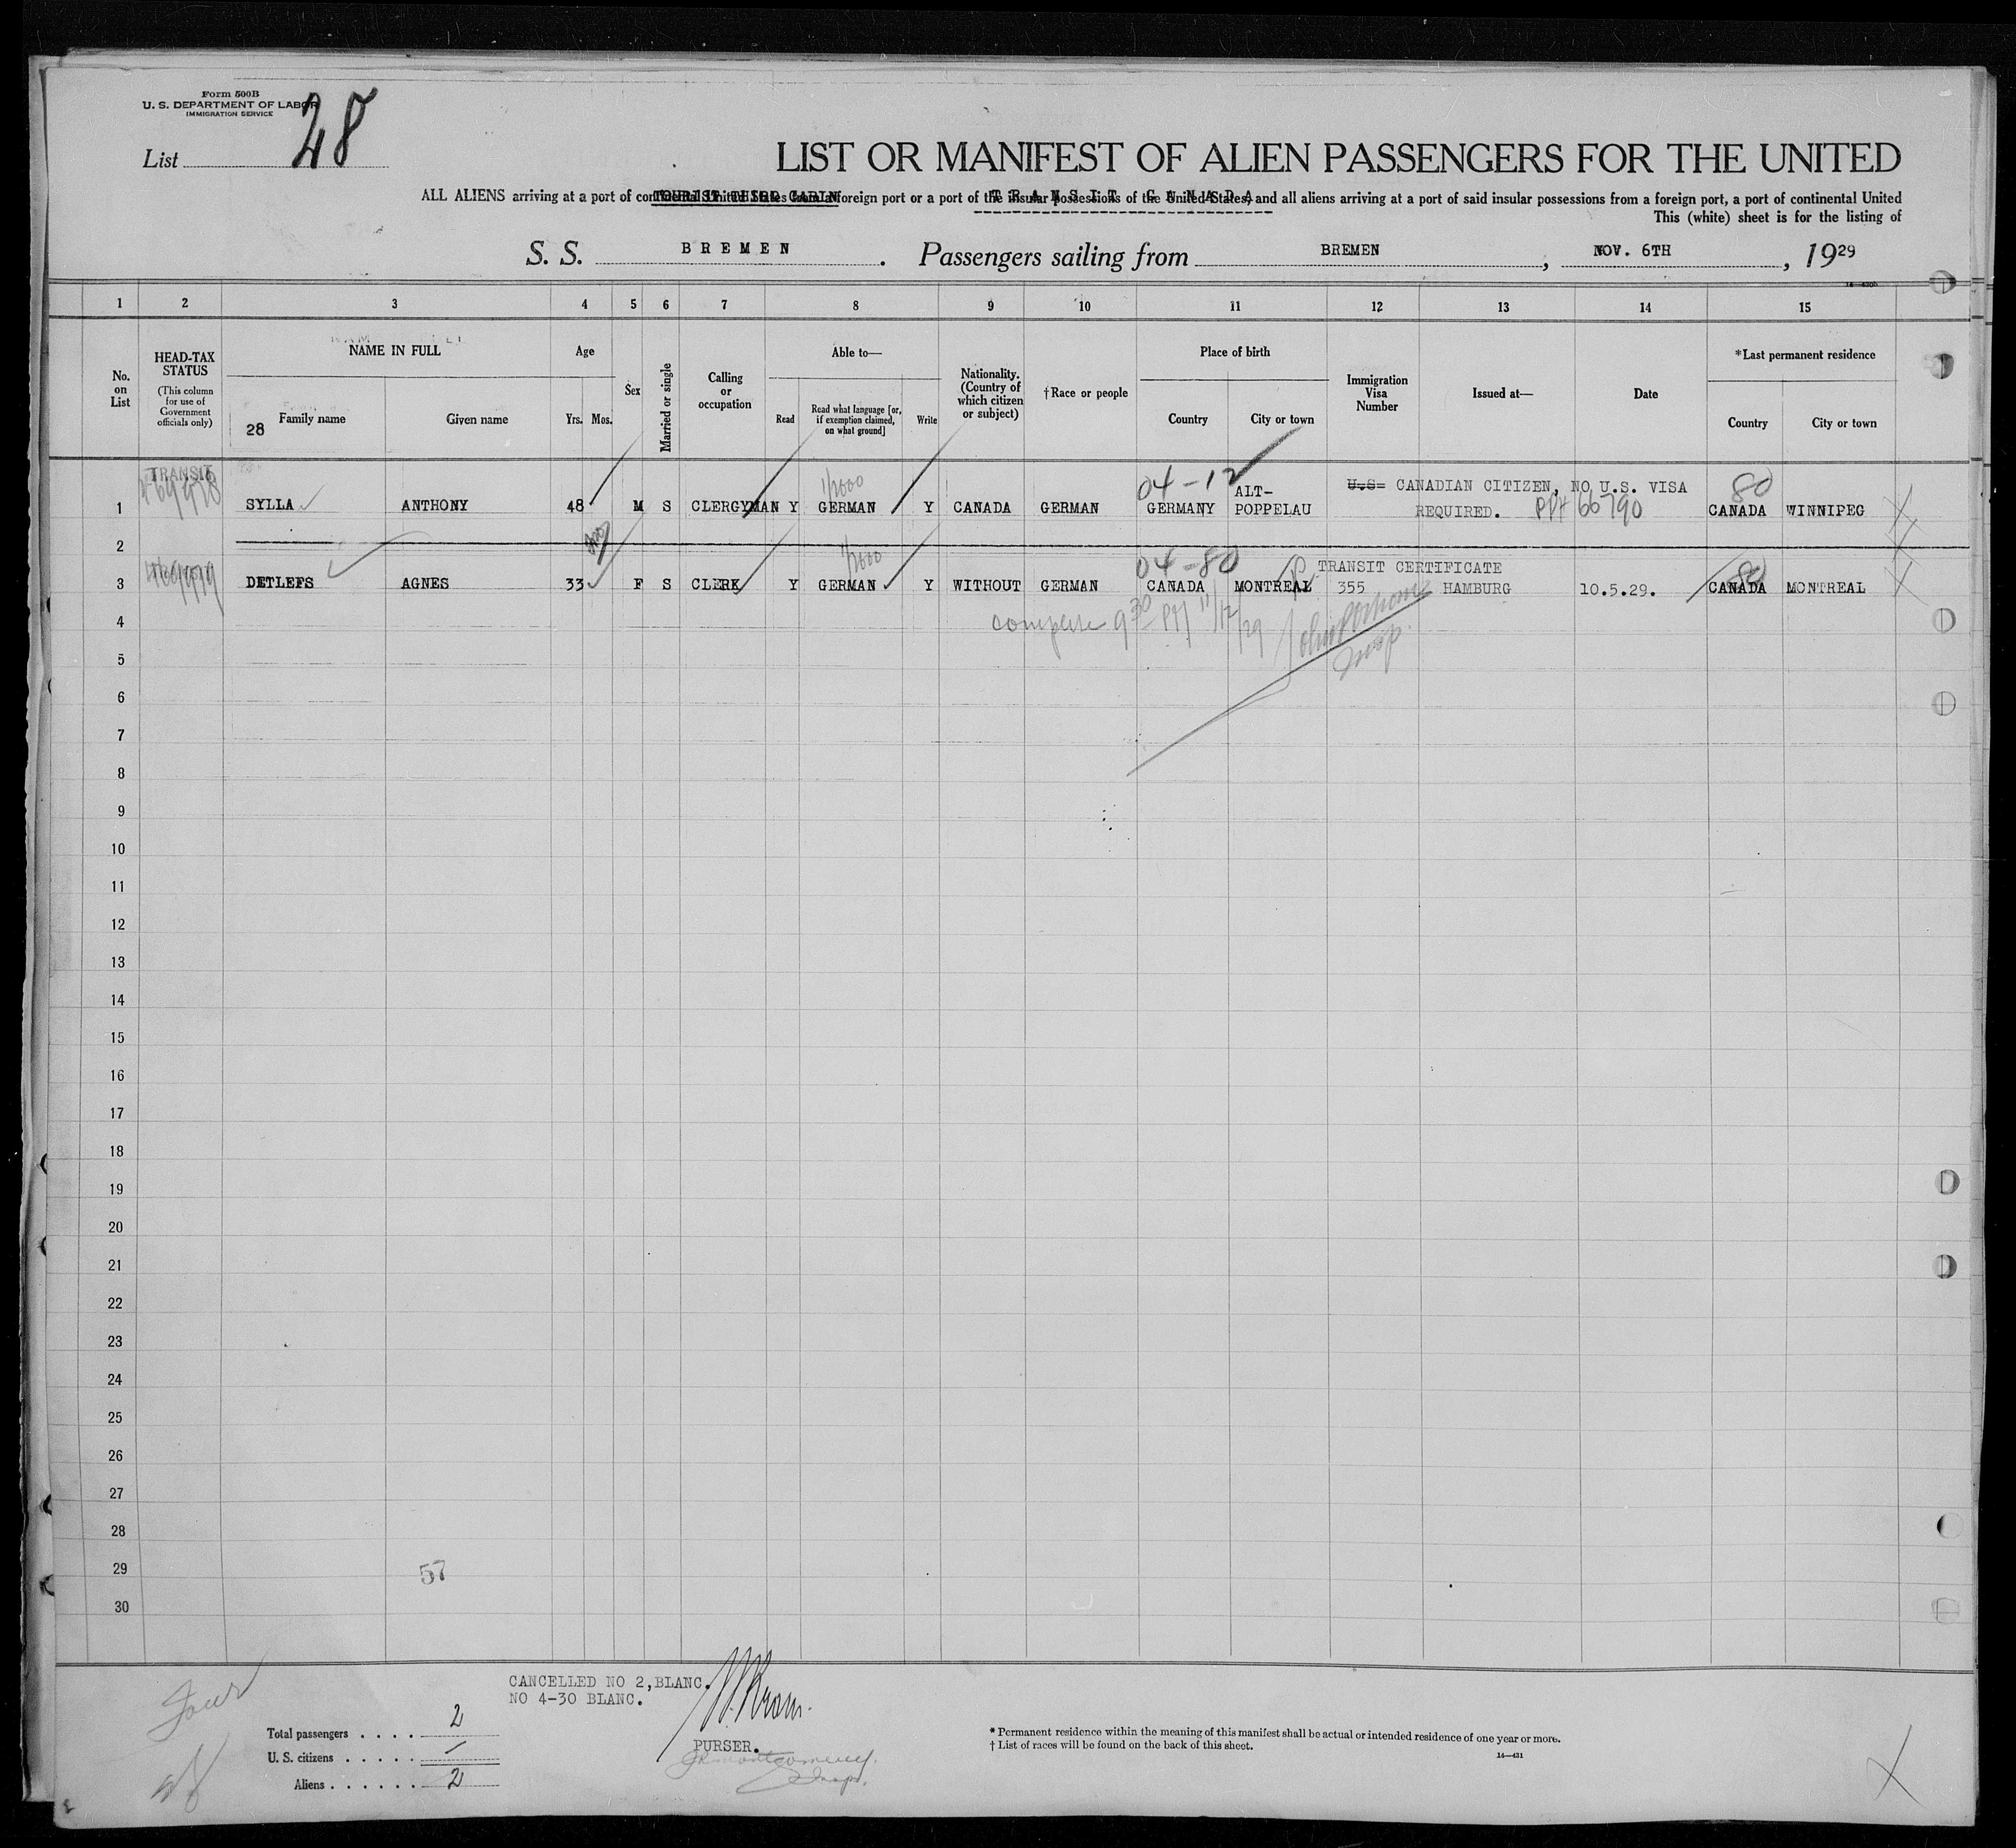 Form 500B
U. S. DEPARTMENT OF LABOR
IMMIGRATION SERVICE
List 28
LIST OR MANIFEST OF ALIEN PASSENGERS FOR THE UNITED
TOURIST THIRD CABIN TRANSIT CANADA
ALL ALIENS arriving at a port of continental United States from a foreign port or a port of the insular possessions of the United States, and all aliens arriving at a port of said insular possessions from a foreign port, a port of continental United
This (white) sheet is for the listing of
S. S. BREMEN . Passengers sailing from BREMEN , NOV. 6TH , 1929
1 2 3 4 5 6 7 8 9 10 11 12 13 14 15
No. on List
HEAD-TAX STATUS
(This column for use of Government officials only)
NAME IN FULL
28 Family name Given name
Age
Yrs. Mos.
Sex
Married or single
Calling or occupation
Able to—
Read
Read what language [or, if exemption claimed, on what ground]
Write
Nationality. (Country of which citizen or subject)
†Race or people
Place of birth
Country City or town
Immigration Visa Number
Issued at—
Date
*Last permanent residence
Country City or town
TRANSIT
04-12 80
1 SYLLA ANTHONY 48 M S CLERGYMAN Y GERMAN Y CANADA GERMAN GERMANY ALT-POPPELAU U.S. CANADIAN CITIZEN, NO U.S. VISA REQUIRED. PPt 66790 CANADA WINNIPEG
2
04-80 80
TRANSIT CERTIFICATE
3 DETLEFS AGNES 33 F S CLERK Y GERMAN Y WITHOUT GERMAN CANADA MONTREAL 355 HAMBURG 10.5.29. CANADA MONTREAL
complete 9 30 11/12/29
Insp.
4
5
6
7
8
9
10
11
12
13
14
15
16
17
18
19
20
21
22
23
24
25
26
27
28
29 57
30
CANCELLED NO 2,BLANC.
NO 4-30 BLANC.
Total passengers . . . . 2
U. S. citizens . . . . . /
Aliens . . . . . . 2
PURSER.
Montgomery
Insp.
* Permanent residence within the meaning of this manifest shall be actual or intended residence of one year or more.
† List of races will be found on the back of this sheet.
14—431